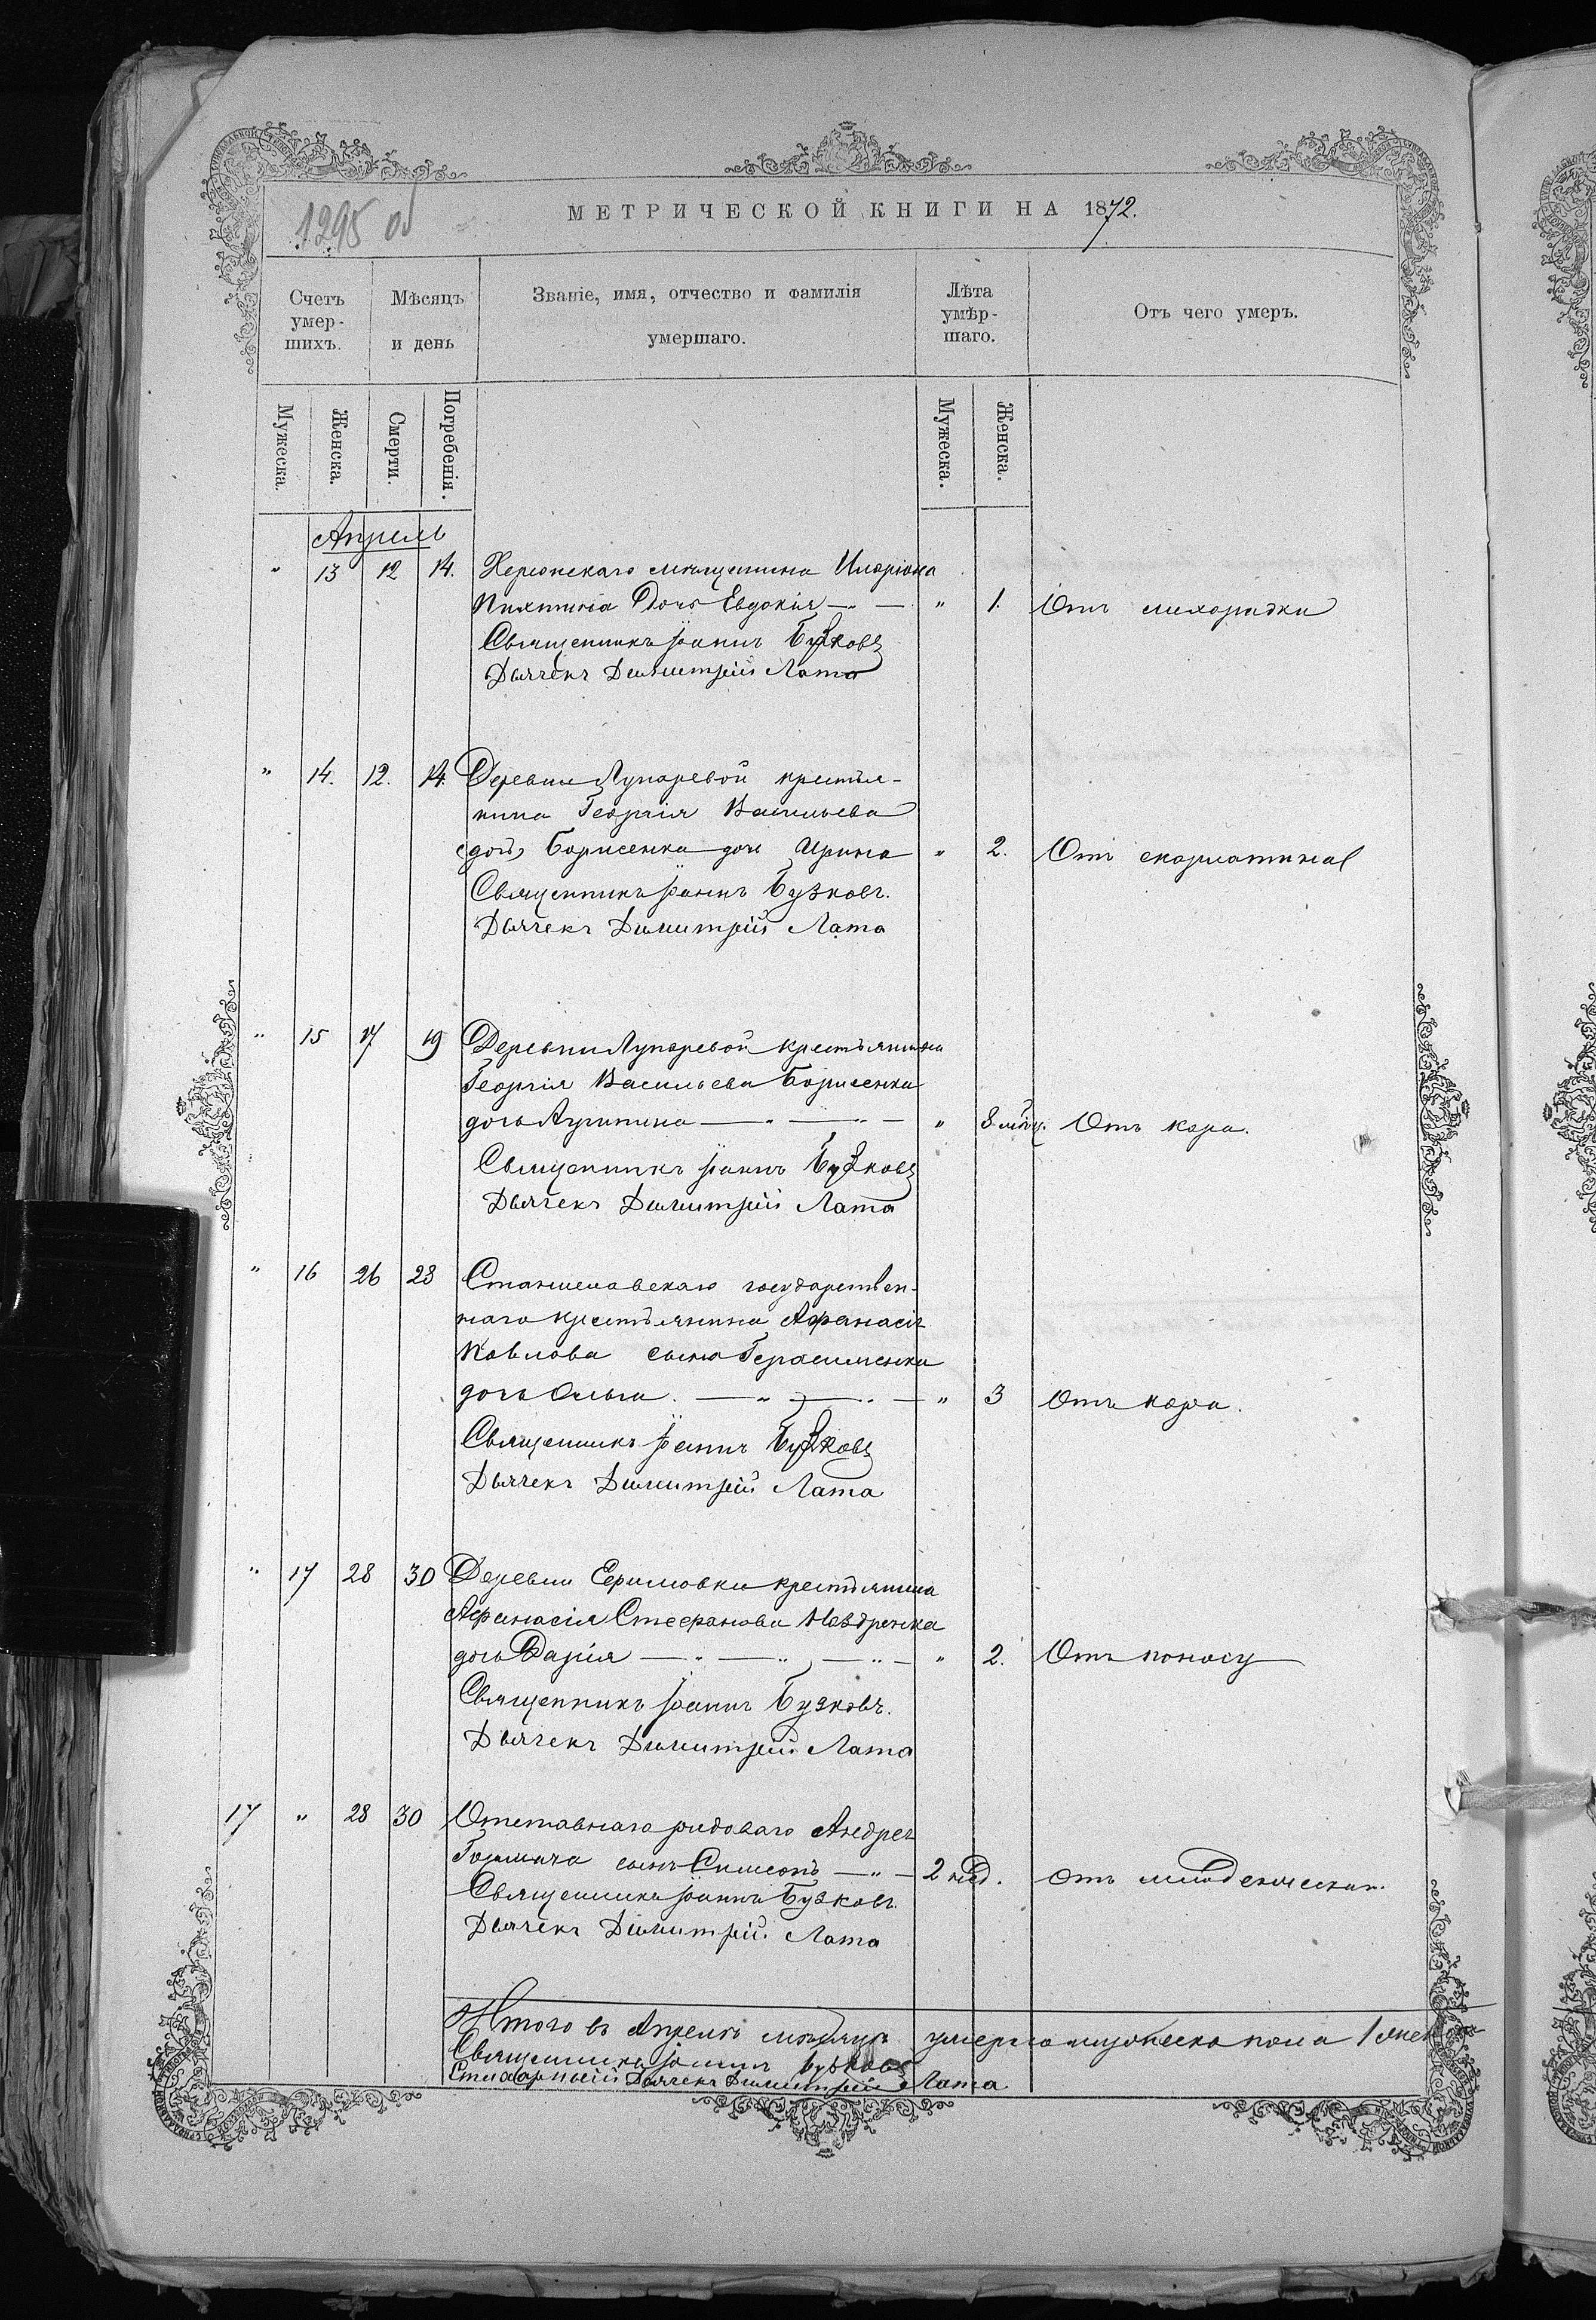 1295 об
МЕТРИЧЕСКОЙ КНИГИ НА 1872.
Счетъ умер-шихъ.
Мѣсяцъ и день
Званіе, имя, отчество и фамилія умершаго.
Лѣта умѣр-шаго.
Отъ чего умеръ.
Мужеска.
Женска.
Смерти.
Погребенія.
Мужеска.
Женска.
Апрель
" 13 12 14. Херсонскаго мѣщанина Иларіона
дочь Евдокія — " 1. Отъ лихорадки
Священникъ Іоаннъ Бузковъ
Дьячекъ Димитрій Лата
" 14. 12. 14. Деревни Лупаревой крестья-
нина Георгія Васильева
Борисенка дочь Ирина " 2. Отъ скарлатина
Священникъ Іоаннъ Бузковъ.
Дьячекъ Димитрій Лата
" 15 17 19 Деревни Лупаревой крестьянина
Георгія Васильева Борисенка
дочь Агрипина — " — " — " 8 мѣц. Отъ кора.
Священникъ Іоаннъ Бузковъ
Дьячекъ Димитрій Лата
" 16 26 28 Станиславскаго государствен-
наго крестьянина Афанасія
Павлова сына Герасименка
дочь Ольга. — " — " — " 3 Отъ кора.
Священникъ Іоаннъ Бузковъ
Дьячекъ Димитрій Лата
" 17 28 30 Деревни крестьянина
Афанасія Стефанова
дочь Дарія — " — " — " — " 2. Отъ поносу
Священникъ Іоаннъ Бузковъ.
Дьячекъ Димитрій Лата
17 " 28 30 Отставнаго рядоваго Андрея
сынъ Симеонъ — " — 2 нед. отъ младенческой.
Священникъ Іоаннъ Бузковъ.
Дьячекъ Димитрій Лата
Итого въ Апрелѣ мѣсяцѣ умерло мужеска пола 1 женск
Священникъ Іоаннъ Бузковъ
Стихарный Дьячекъ Димитрій Лата